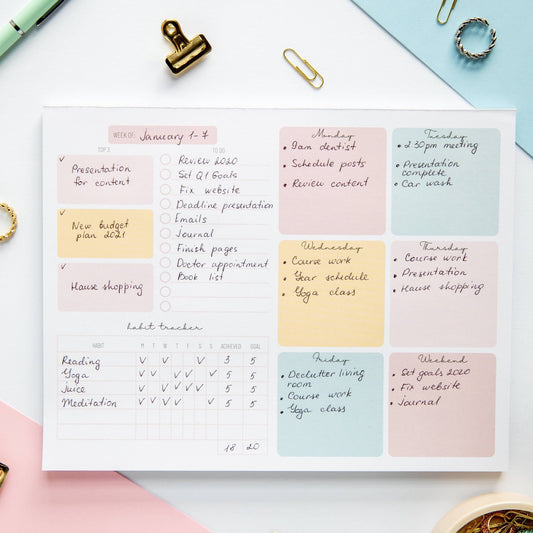 WEEK OF: January 1-7
TOP 3
Presentation
for content
New budget
plan 2021
Hause shopping
TO DO
Review 2020
Set Q1 Goals
Fix website
Deadline presentation
Emails
Journal
Finish pages
Doctor appointment
Book list
habit tracker
HABIT M T W T F S S ACHIEVED GOAL
Reading v v v 3 5
Yoga v v v v v 5 5
Juice v v v v v 5 5
Meditation v v v v v 5 5
18 20
Monday
• 9am dentist
• Schedule posts
• Review content
Tuesday
• 2:30pm meeting
• Presentation
complete
• Car wash
Wednesday
• Course work
• Year schedule
• Yoga class
Thursday
• Course work
• Presentation
• Hause shopping
Friday
• Declutter living
room
• Course work
• Yoga class
Weekend
• Set goals 2020
• Fix website
• Journal